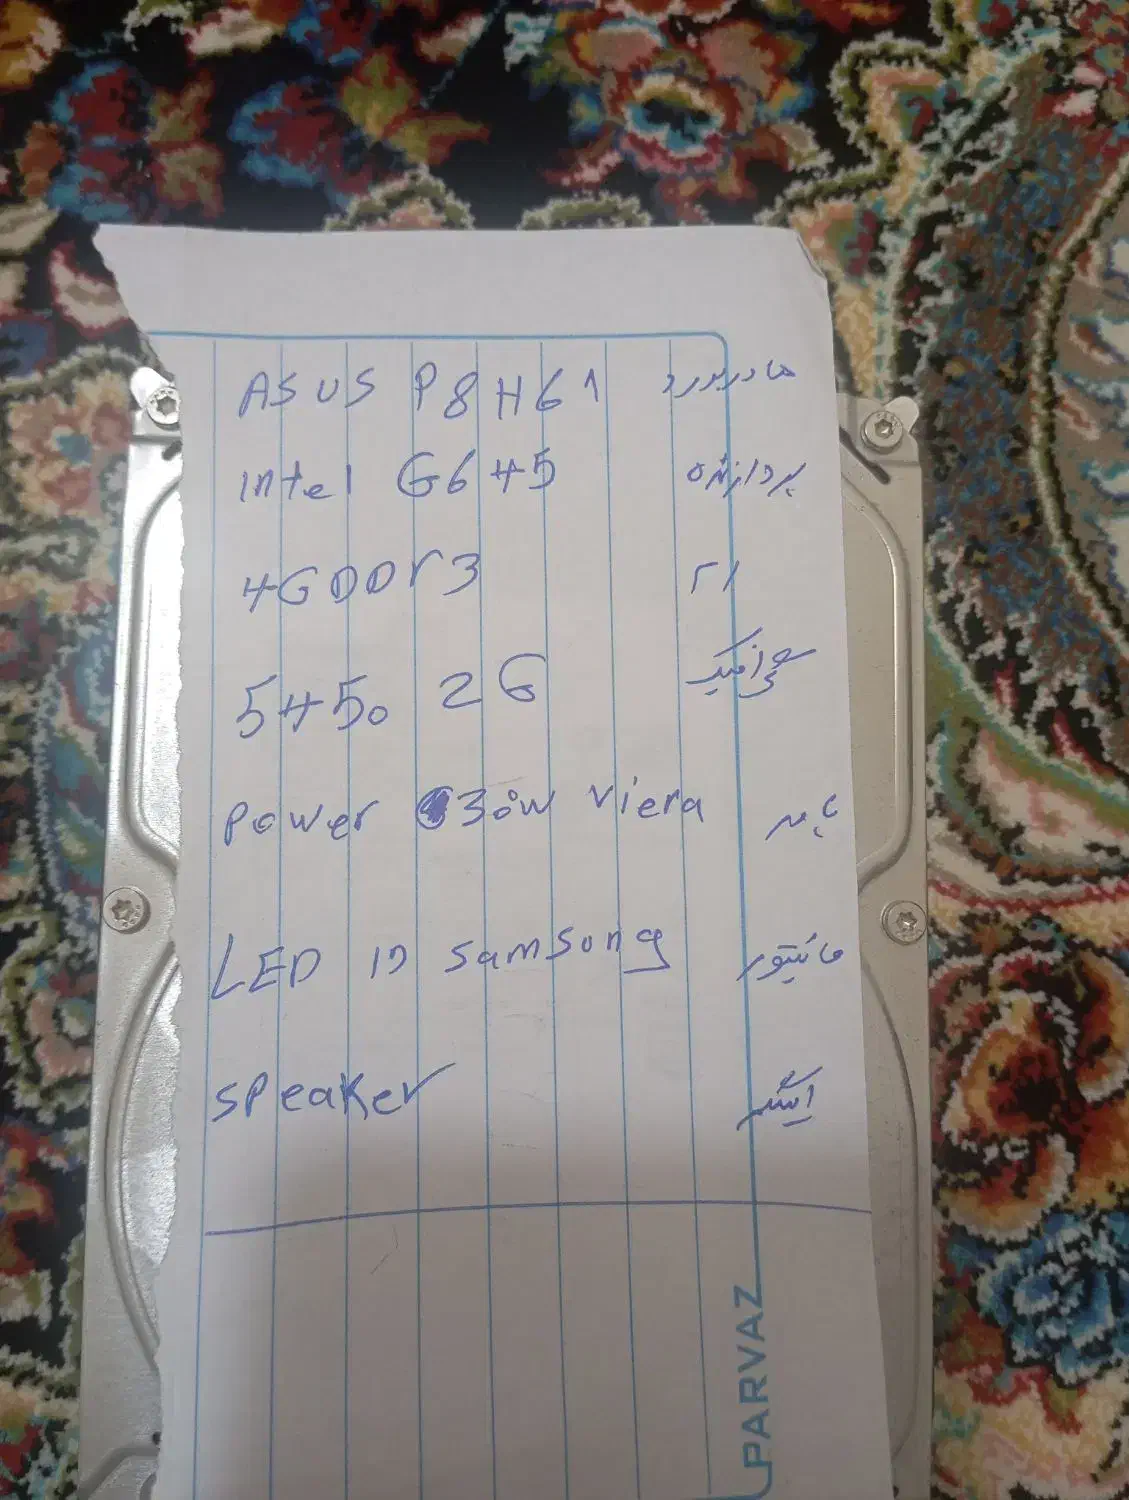 ASUS P8H61 مادربورد
intel G645 پردازنده
4G DDr3 رم
5450 2G گرافیک
Power 30w Viera پاور
LED 19 Samsung مانیتور
Speaker اسپیکر
PARVAZ